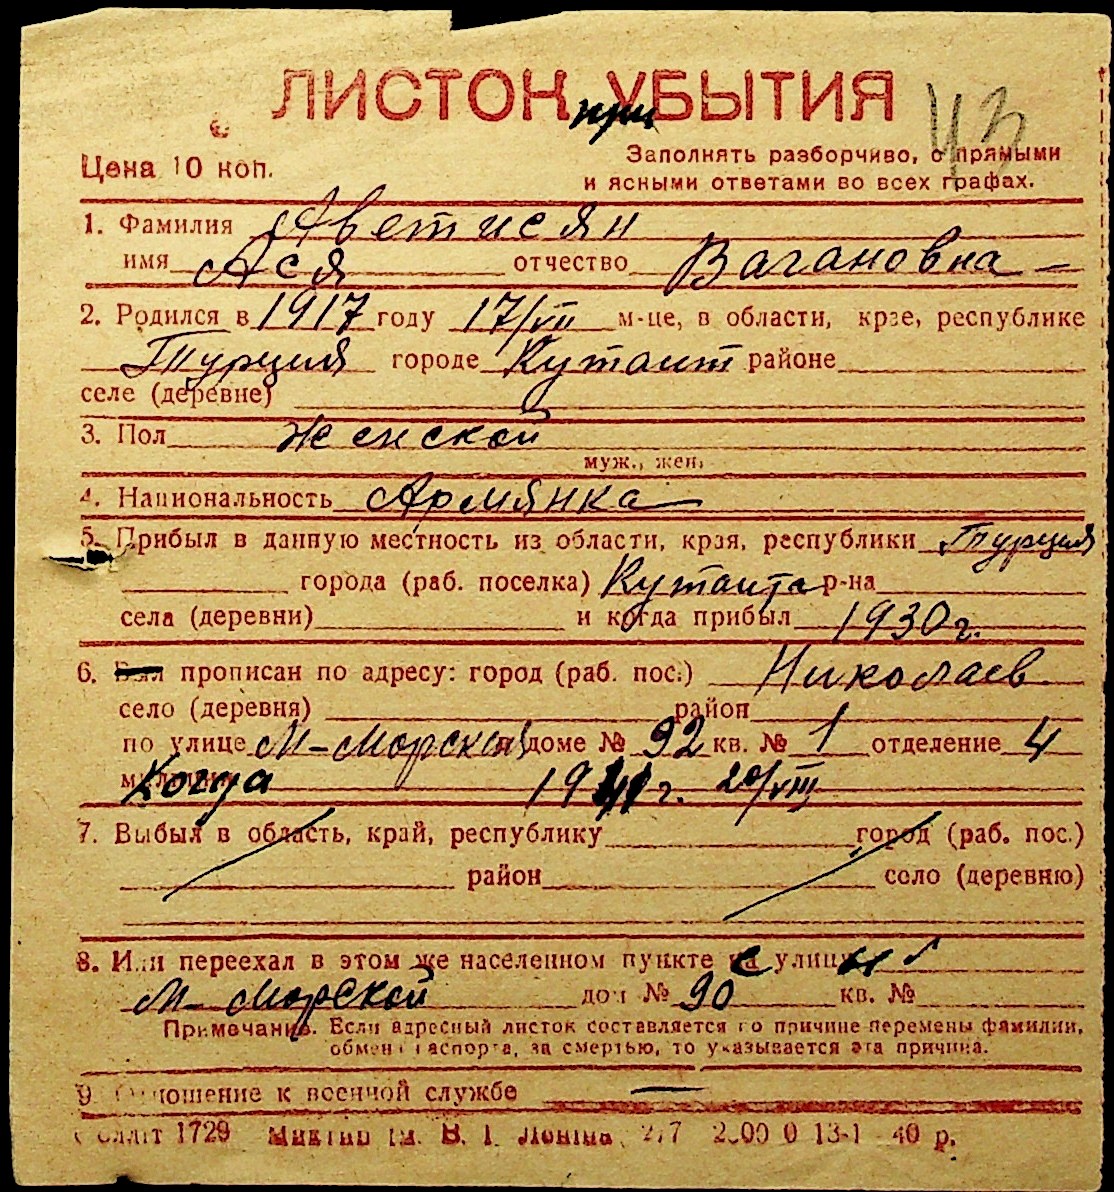 ЛИСТОК УБЫТИЯ
при
43
Цена 10 коп.
Заполнять разборчиво, с прямыми
и ясными ответами во всех графах.
1. Фамилия Аветисян
имя Ася отчество Вагановна
2. Родился в 1917 году 17/VII м-це, в области, крае, республике
Турция городе Кутаит районе
селе (деревне)
3. Пол женской
муж., жен.
4. Национальность Армянка
5. Прибыл в данную местность из области, края, республики Турция
города (раб. поселка) Кутаита р-на
села (деревни) и когда прибыл 1930 г.
6. Был прописан по адресу: город (раб. пос.) Николаев
село (деревня) район
по улице М-Морской доме № 92 кв. № 1 отделение 4
милиции Когда 1941 г. 20/VIII
7. Выбыл в область, край, республику город (раб. пос.)
район село (деревню)
8. Или переехал в этом же населенном пункте с улицы
М-Морской дом № 90 кв. №
Примечание. Если адресный листок составляется по причине перемены фамилии,
обмена паспорта, за смертью, то указывается эта причина.
9. Отношение к военной службе —
1729 40 р.